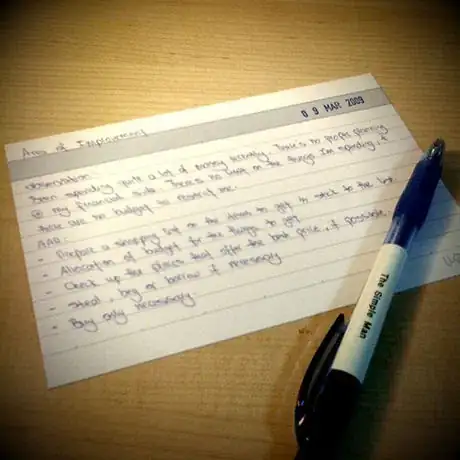 09 MAR 2009
Area of Improvement
Observation:
Been spending quite a lot of money recently. There's no proper planning
my financial There's no limit on the things I'm spending,
there are no budget to restrict me.
AAR:
- Prepare a shopping list on the items to get, to stick to the list.
- Allocation of budget for the things to get
- Check up the places that offer the best price, if possible.
- Steal, beg or borrow if necessary
- Buy only necessary
The Simple Man